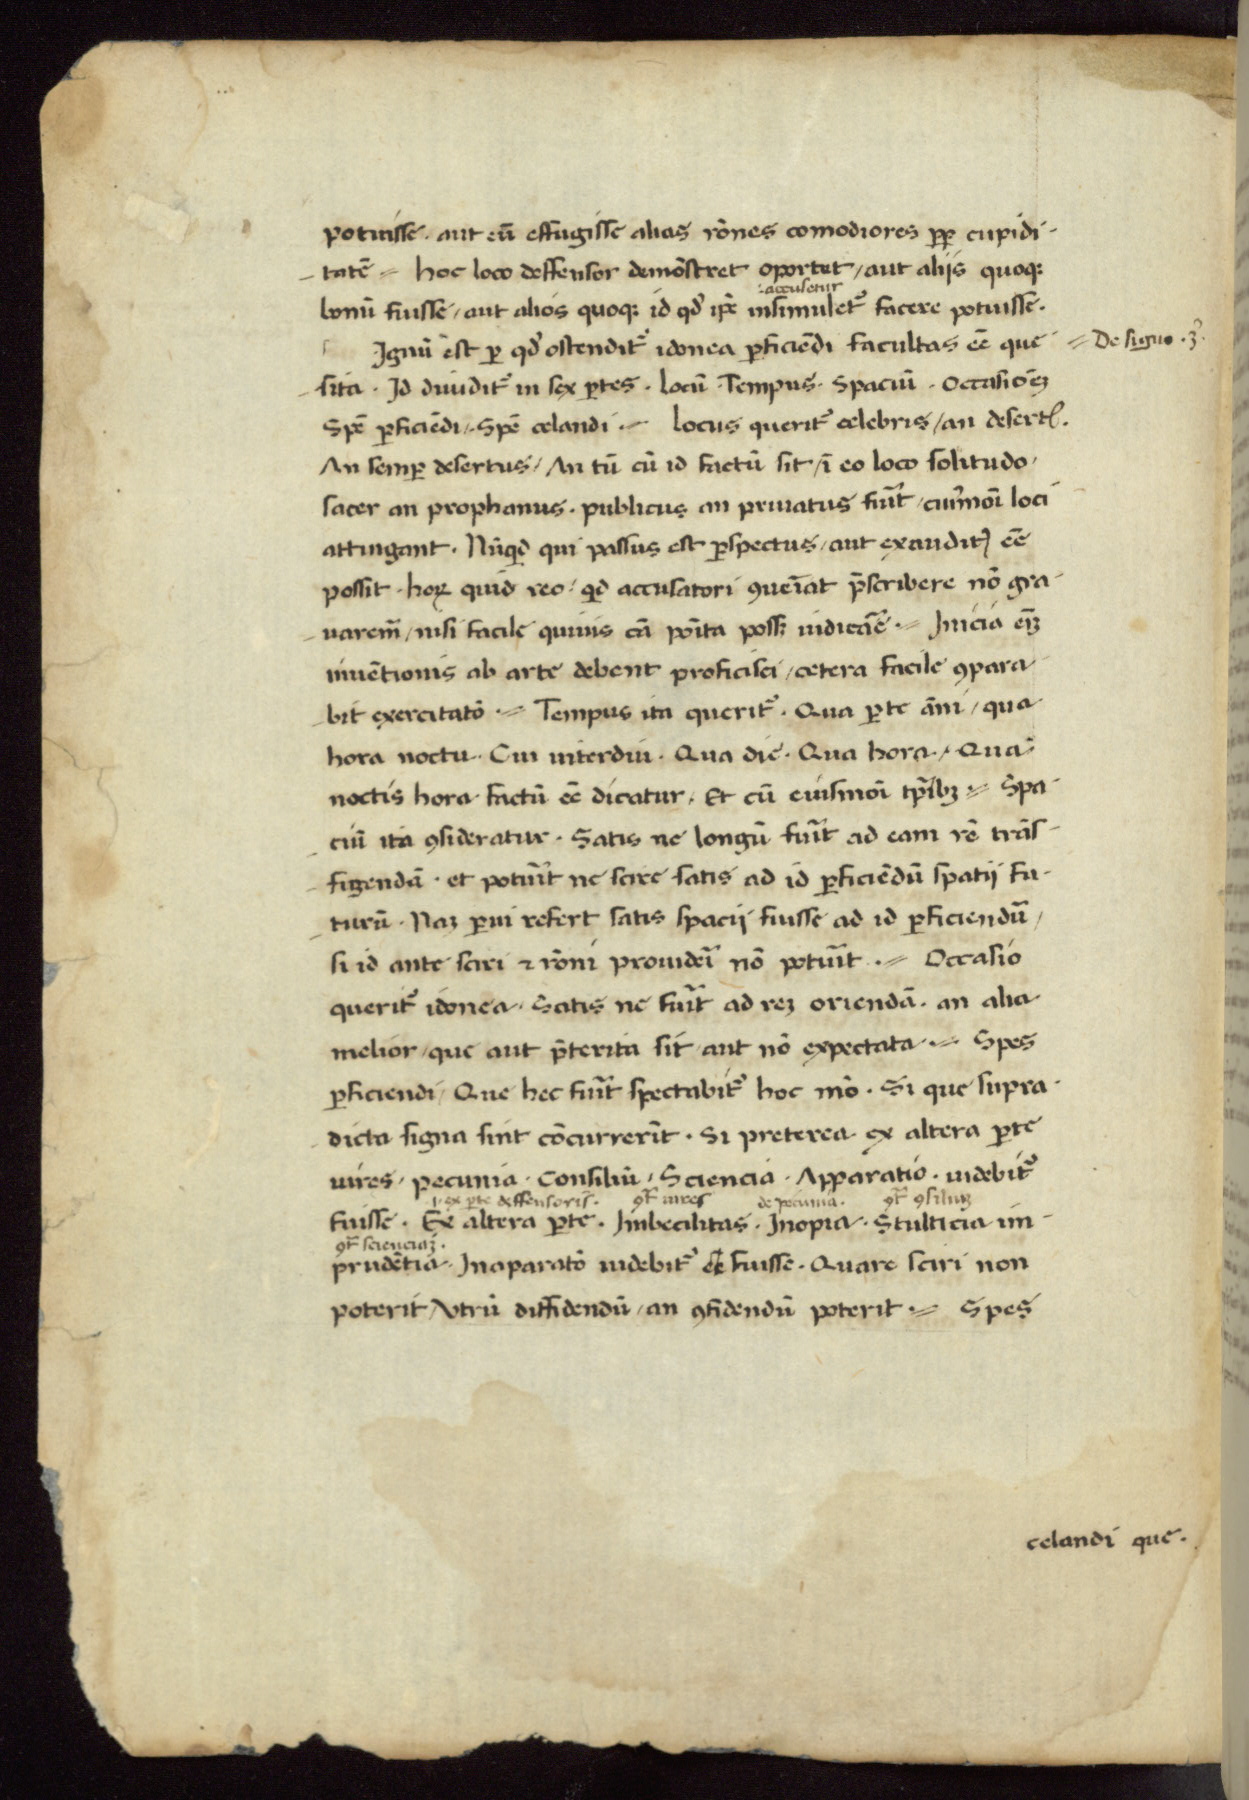 potuisse · aut eū effugisse alias rōnes comodiores ꝓp cupidi-
tatē = hoc loco deffensor demōstret oportet / aut aliis quoqꝫ
bonū fuisse / aut alios quoqꝫ id qď ip̄e insimuletᷣ facere potuisse ·
accusetur
Ignū est ꝑ qď ostenditᷣ idonea ꝑficiēdi facultas eē que
= De signo · 3ᷣ ·
sita · Id diuiditᷣ in sex ꝑtes · Locū · Tempus · Spaciū · Occasionēꝫ
Spē ꝑficiēdi / Spē celandi · = Locus queritᷣ celebris / an desertꝰ ·
An semꝑ desertus / An tū cū id factū sit / ī eo loco solitudo /
sacer an prophanus · publicus an priuatus fuīt / cuiꝰmōi loci
attingant · Nūqd qui passus est ꝑspectus / aut exauditꝰ eē
possit · hoꝝ quid reo / qd accusatori ꝯueīat p̄scribere nō gra-
uarem̄ / nisi facile quiuis cā poīta possꝫ iudicāē · = Inicia em̄
inuētionis ab arte debent proficisci / cetera facile ꝯpara-
bit exercitatō · = Tempus ita queritᷣ · Qua ꝑte āni / qua
hora noctu · Cui interdiu · Qua die · Qua hora / · Qua
noctis hora factū eē dicatur · Et cū eiusmōi tp̄ibꝫ = Spa-
ciū ita ꝯsideratur · Satis ne longū fuīt ad eam rē trās-
figendā · et potuīt ne scire satis ad id ꝑficiēdū spatij fu-
turū · Naꝫ ꝑui refert satis spacij fuisse ad id ꝑficiendū /
si id ante sciri ⁊ rōni prouideī nō potuīt · = Occasio
queritᷣ idonea · Satis ne fuīt ad reꝫ oriendā · an alia
melior / que aut p̄terita sit / aut nō expectata · = Spes
ꝑficiendi / Que hec fuīt spectabitᷣ hoc mō · Si que supra-
dicta signa sint cōcurrerīt · Si preterea ex altera ꝑte
uires / pecunia · Consiliū / Sciencia · Apparatio · uidebitᷣ
i· ex ꝑte deffensoris · ꝯᷓ uires de pecunia · ꝯᷓ ꝯsiliuꝫ
fuisse · Ex altera ꝑte · Imbecilitas · Inopia · Stulticia im-
ꝯᷓ scienciaꝫ ·
prudētia · Inaparatō uidebitᷣ fuisse · Quare sciri non
poterit / Vtrū diffidendū / an ꝯfidendū poterit · = Spes
celandi que ·